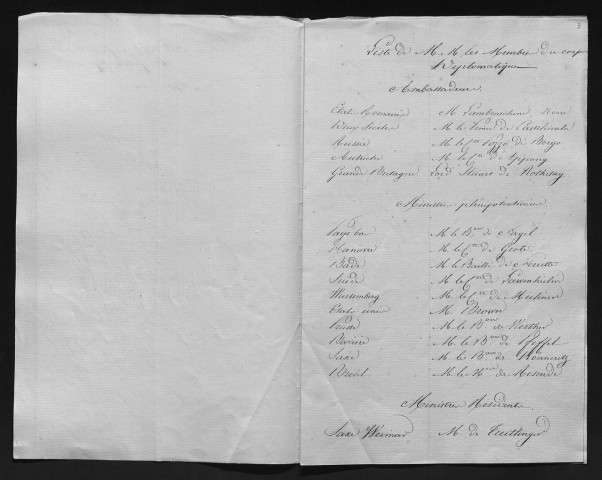 3
Liste de M. M. les Membres du corps
Diplomatique
Ambassadeurs
États Romains M. Lambruschini Nonce
Deux Siciles M. le Prince de Castelcicala
Russie M. le Cte Pozzo di Borgo
Autriche M. le Cte d'Appony
Grande Bretagne Lord Stuart de Rothesay
Ministres plénipotentiaires
Pays bas M. le Bon de Fagel
Hanovre M. le Cte de Grote
Bade M. le Bailli de Ferrette
Suède M. le Cte de Löwenhielm
Wurtemberg M. le Cte de Mulinen
États unis M. Brown
Prusse M. le Bon de Werther
Bavière M. le Bon de Pfeffel
Saxe M. le Bon de Könneritz
Brésil M. le de Rezende
Ministres Résidents
Saxe Weimar M. de Treitlinger